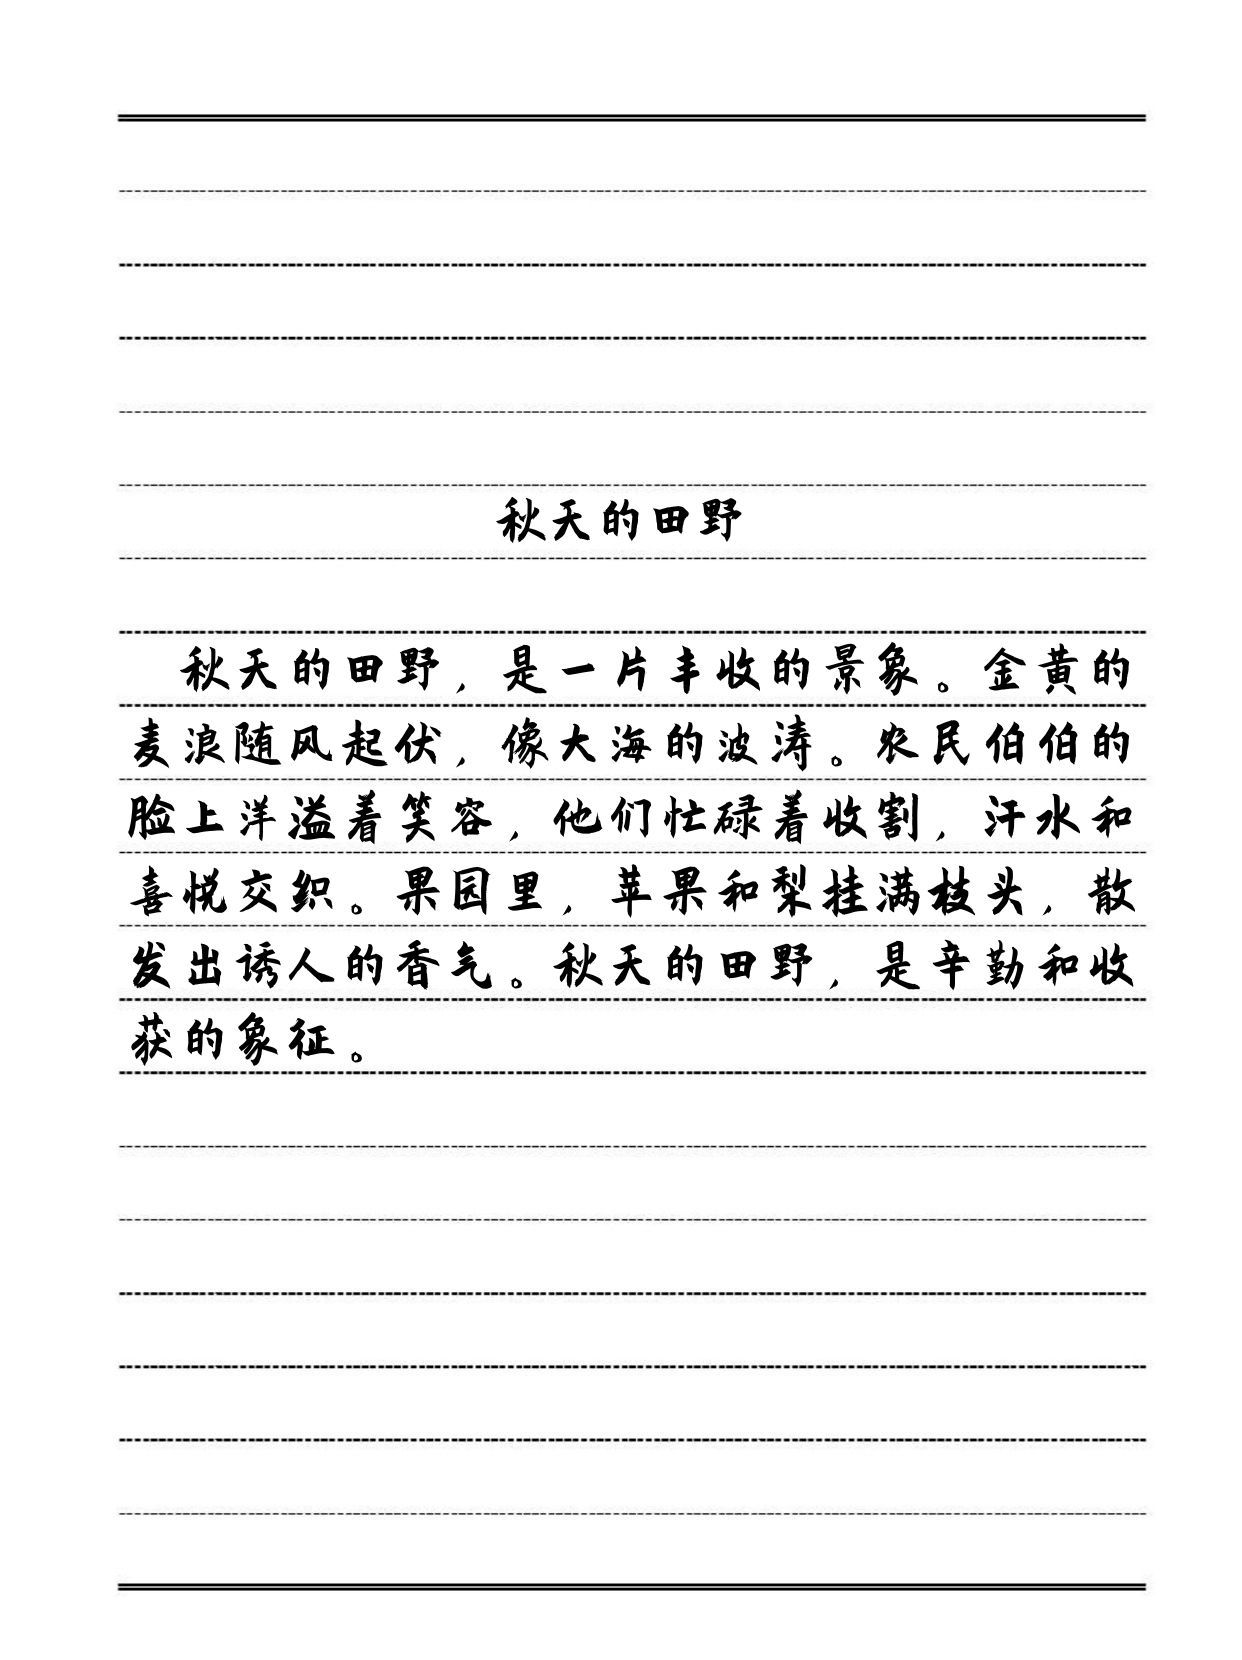 秋天的田野
秋天的田野，是一片丰收的景象。金黄的
麦浪随风起伏，像大海的波涛。农民伯伯的
脸上洋溢着笑容，他们忙碌着收割，汗水和
喜悦交织。果园里，苹果和梨挂满枝头，散
发出诱人的香气。秋天的田野，是辛勤和收
获的象征。